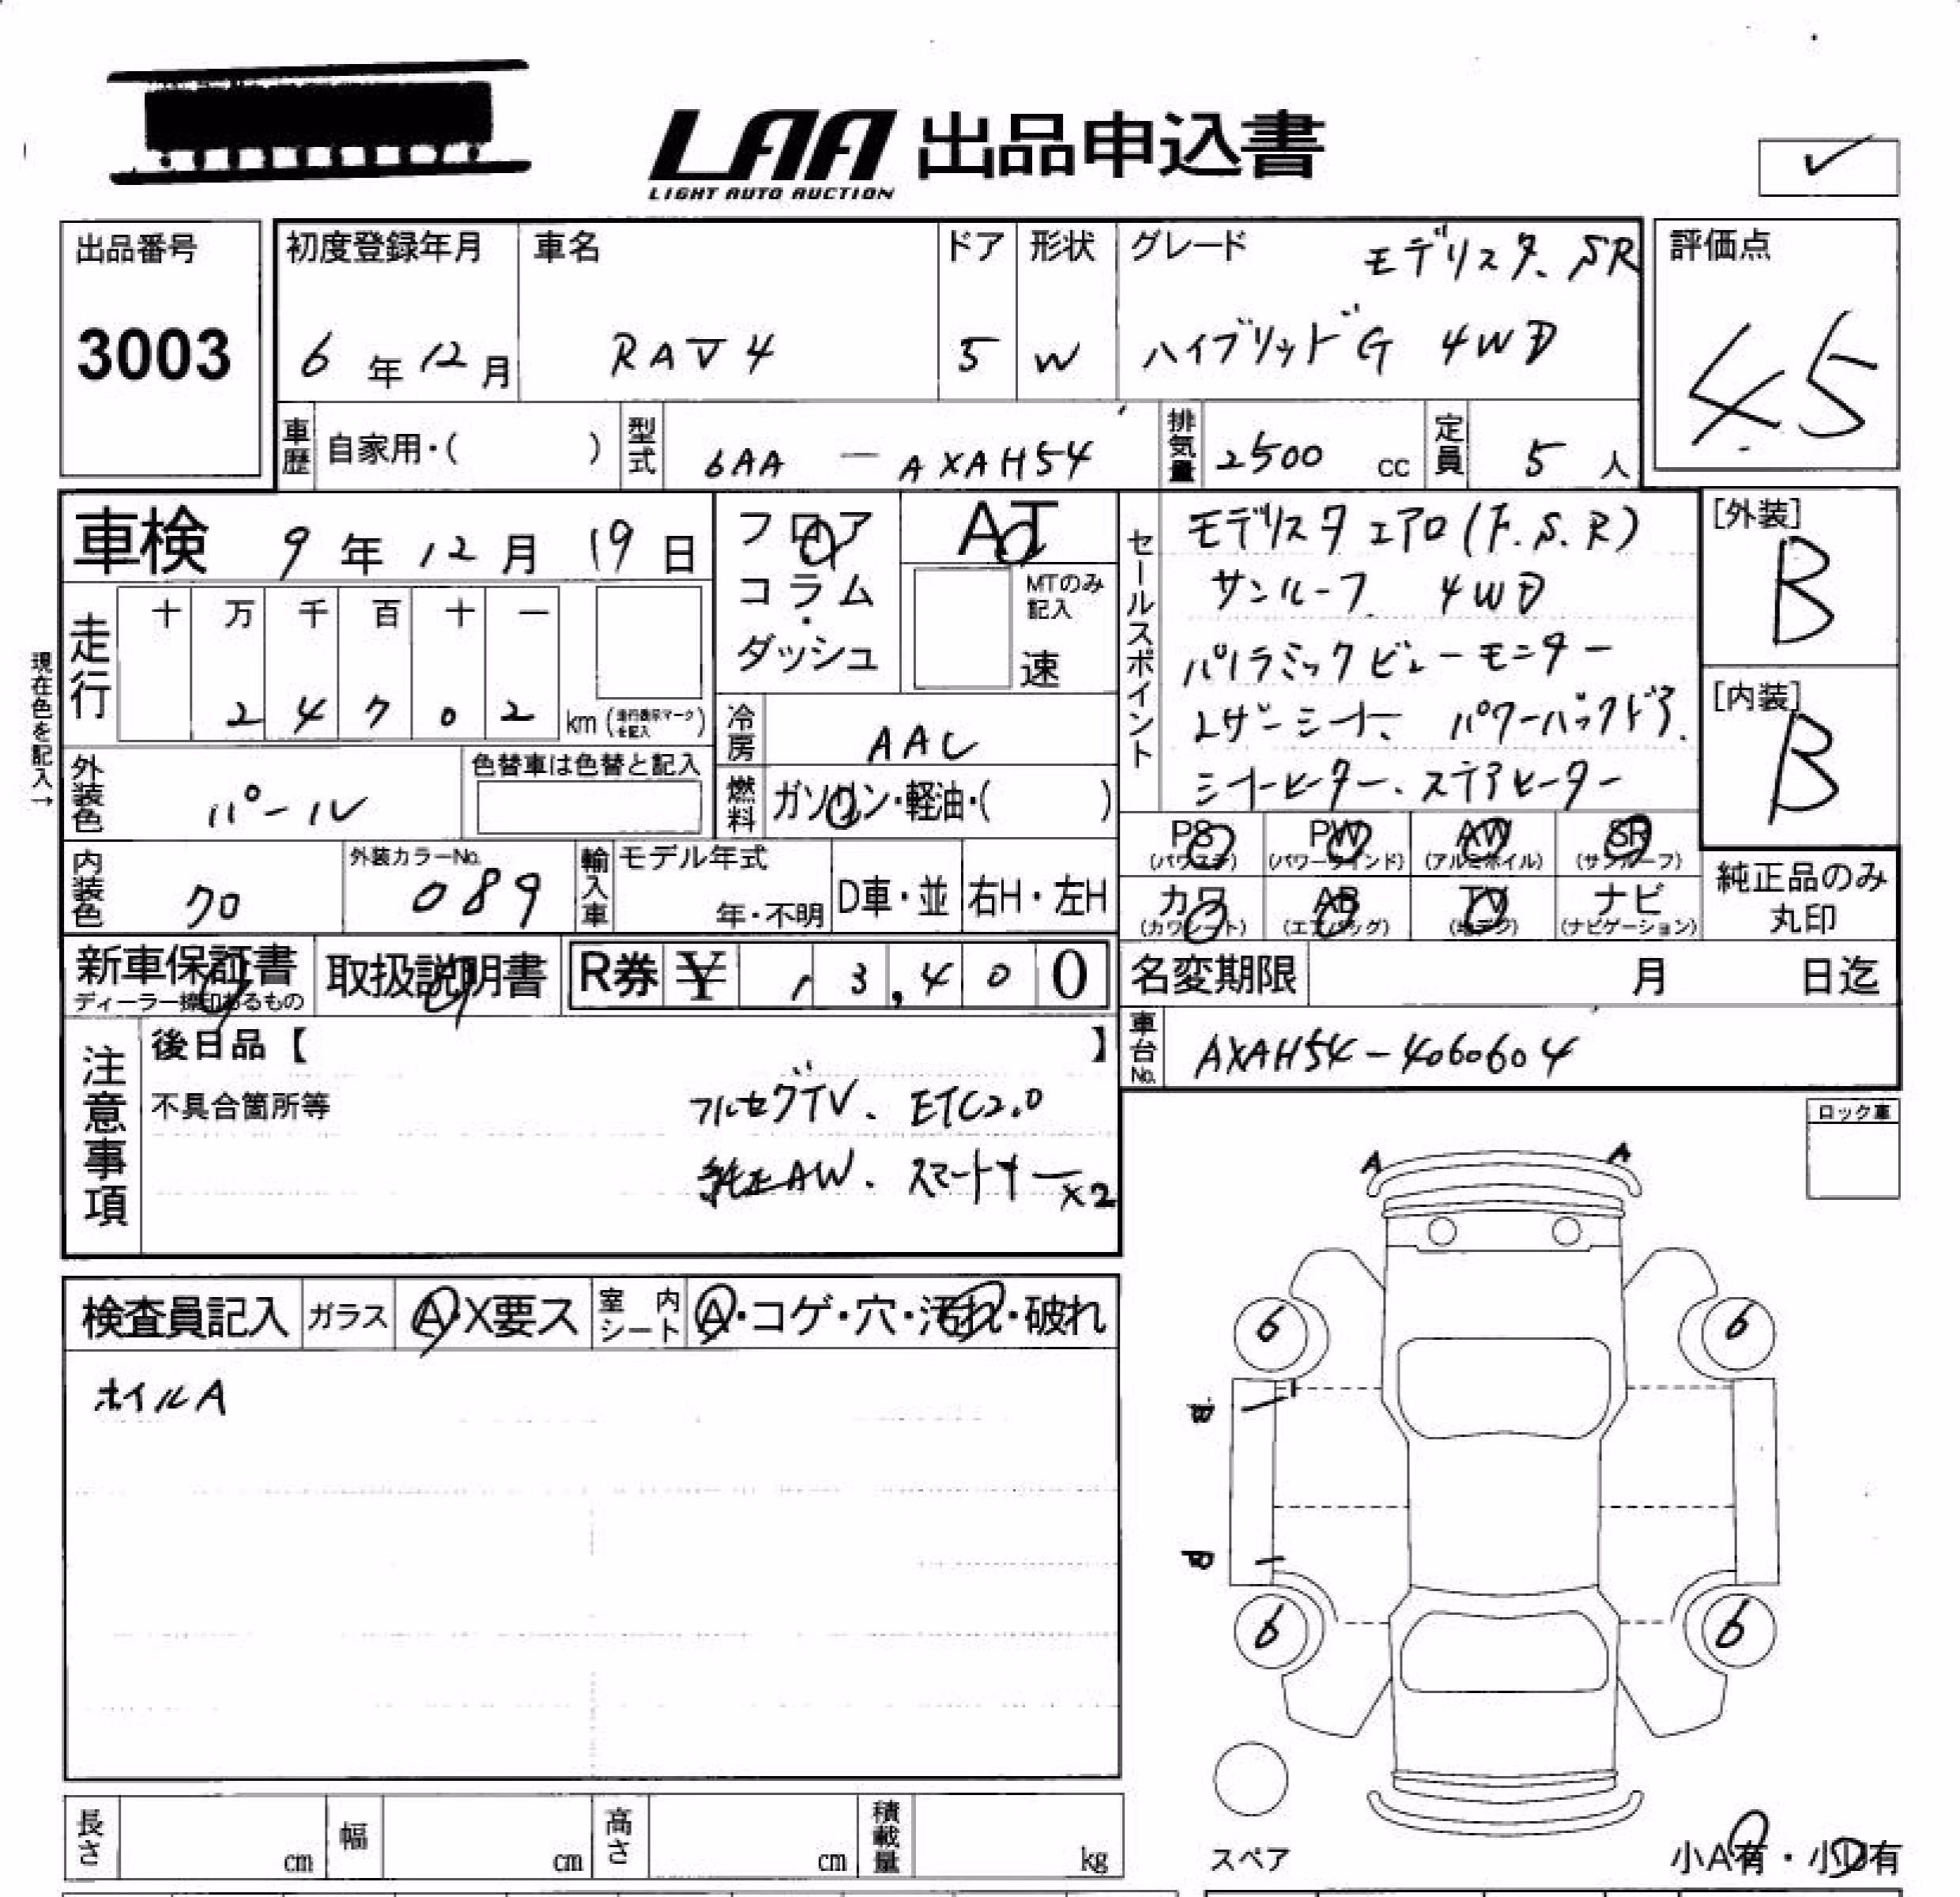 LAA 出品申込書
LIGHT AUTO AUCTION
✓
出品番号
3003
初度登録年月
6年12月
車名
RAV4
ドア
5
形状
W
グレード
モデリスタ、SR
ハイブリッドG 4WD
評価点
4.5
車歴
自家用・( )
型式
6AA - AXAH54
排気量
2500 cc
定員
5人
車検 9年12月19日
走行
十 万 千 百 十 一
2 4 7 0 2 km (走行表示マークを記入)
現在色を記入→
外装色
パール
色替車は色替と記入
内装色
クロ
外装カラーNo.
089
フロア
コラム
・
ダッシュ
AT
MTのみ記入
速
冷房
AAC
燃料
ガソリン・軽油・( )
輸入車
モデル年式
年・不明
D車・並
右H・左H
セールスポイント
モデリスタエアロ(F.S.R)
サンルーフ、4WD
パノラミックビューモニター
レザーシート、パワーバックドア、
シートヒーター、ステアヒーター
[外装]
B
[内装]
B
PS (パワステ)
PW (パワーウインド)
AW (アルミホイル)
SR (サンルーフ)
カワ (カワシート)
AB (エアバッグ)
TV (地デジ)
ナビ (ナビゲーション)
純正品のみ
丸印
新車保証書
ディーラー捺印あるもの
取扱説明書
R券 ¥ 3,400
名変期限 月 日迄
車台No.
AXAH54-4060604
注意事項
後日品【 】
不具合箇所等
フルセグTV、ETC2.0
純正AW、スマートキーx2
ロック車
検査員記入
ガラス
A・X要ス
室内シート
A・コゲ・穴・汚れ・破れ
ホイルA
A A
6 6
d
6 6
長さ cm
幅 cm
高さ cm
積載量 kg
スペア
小A有・小D有